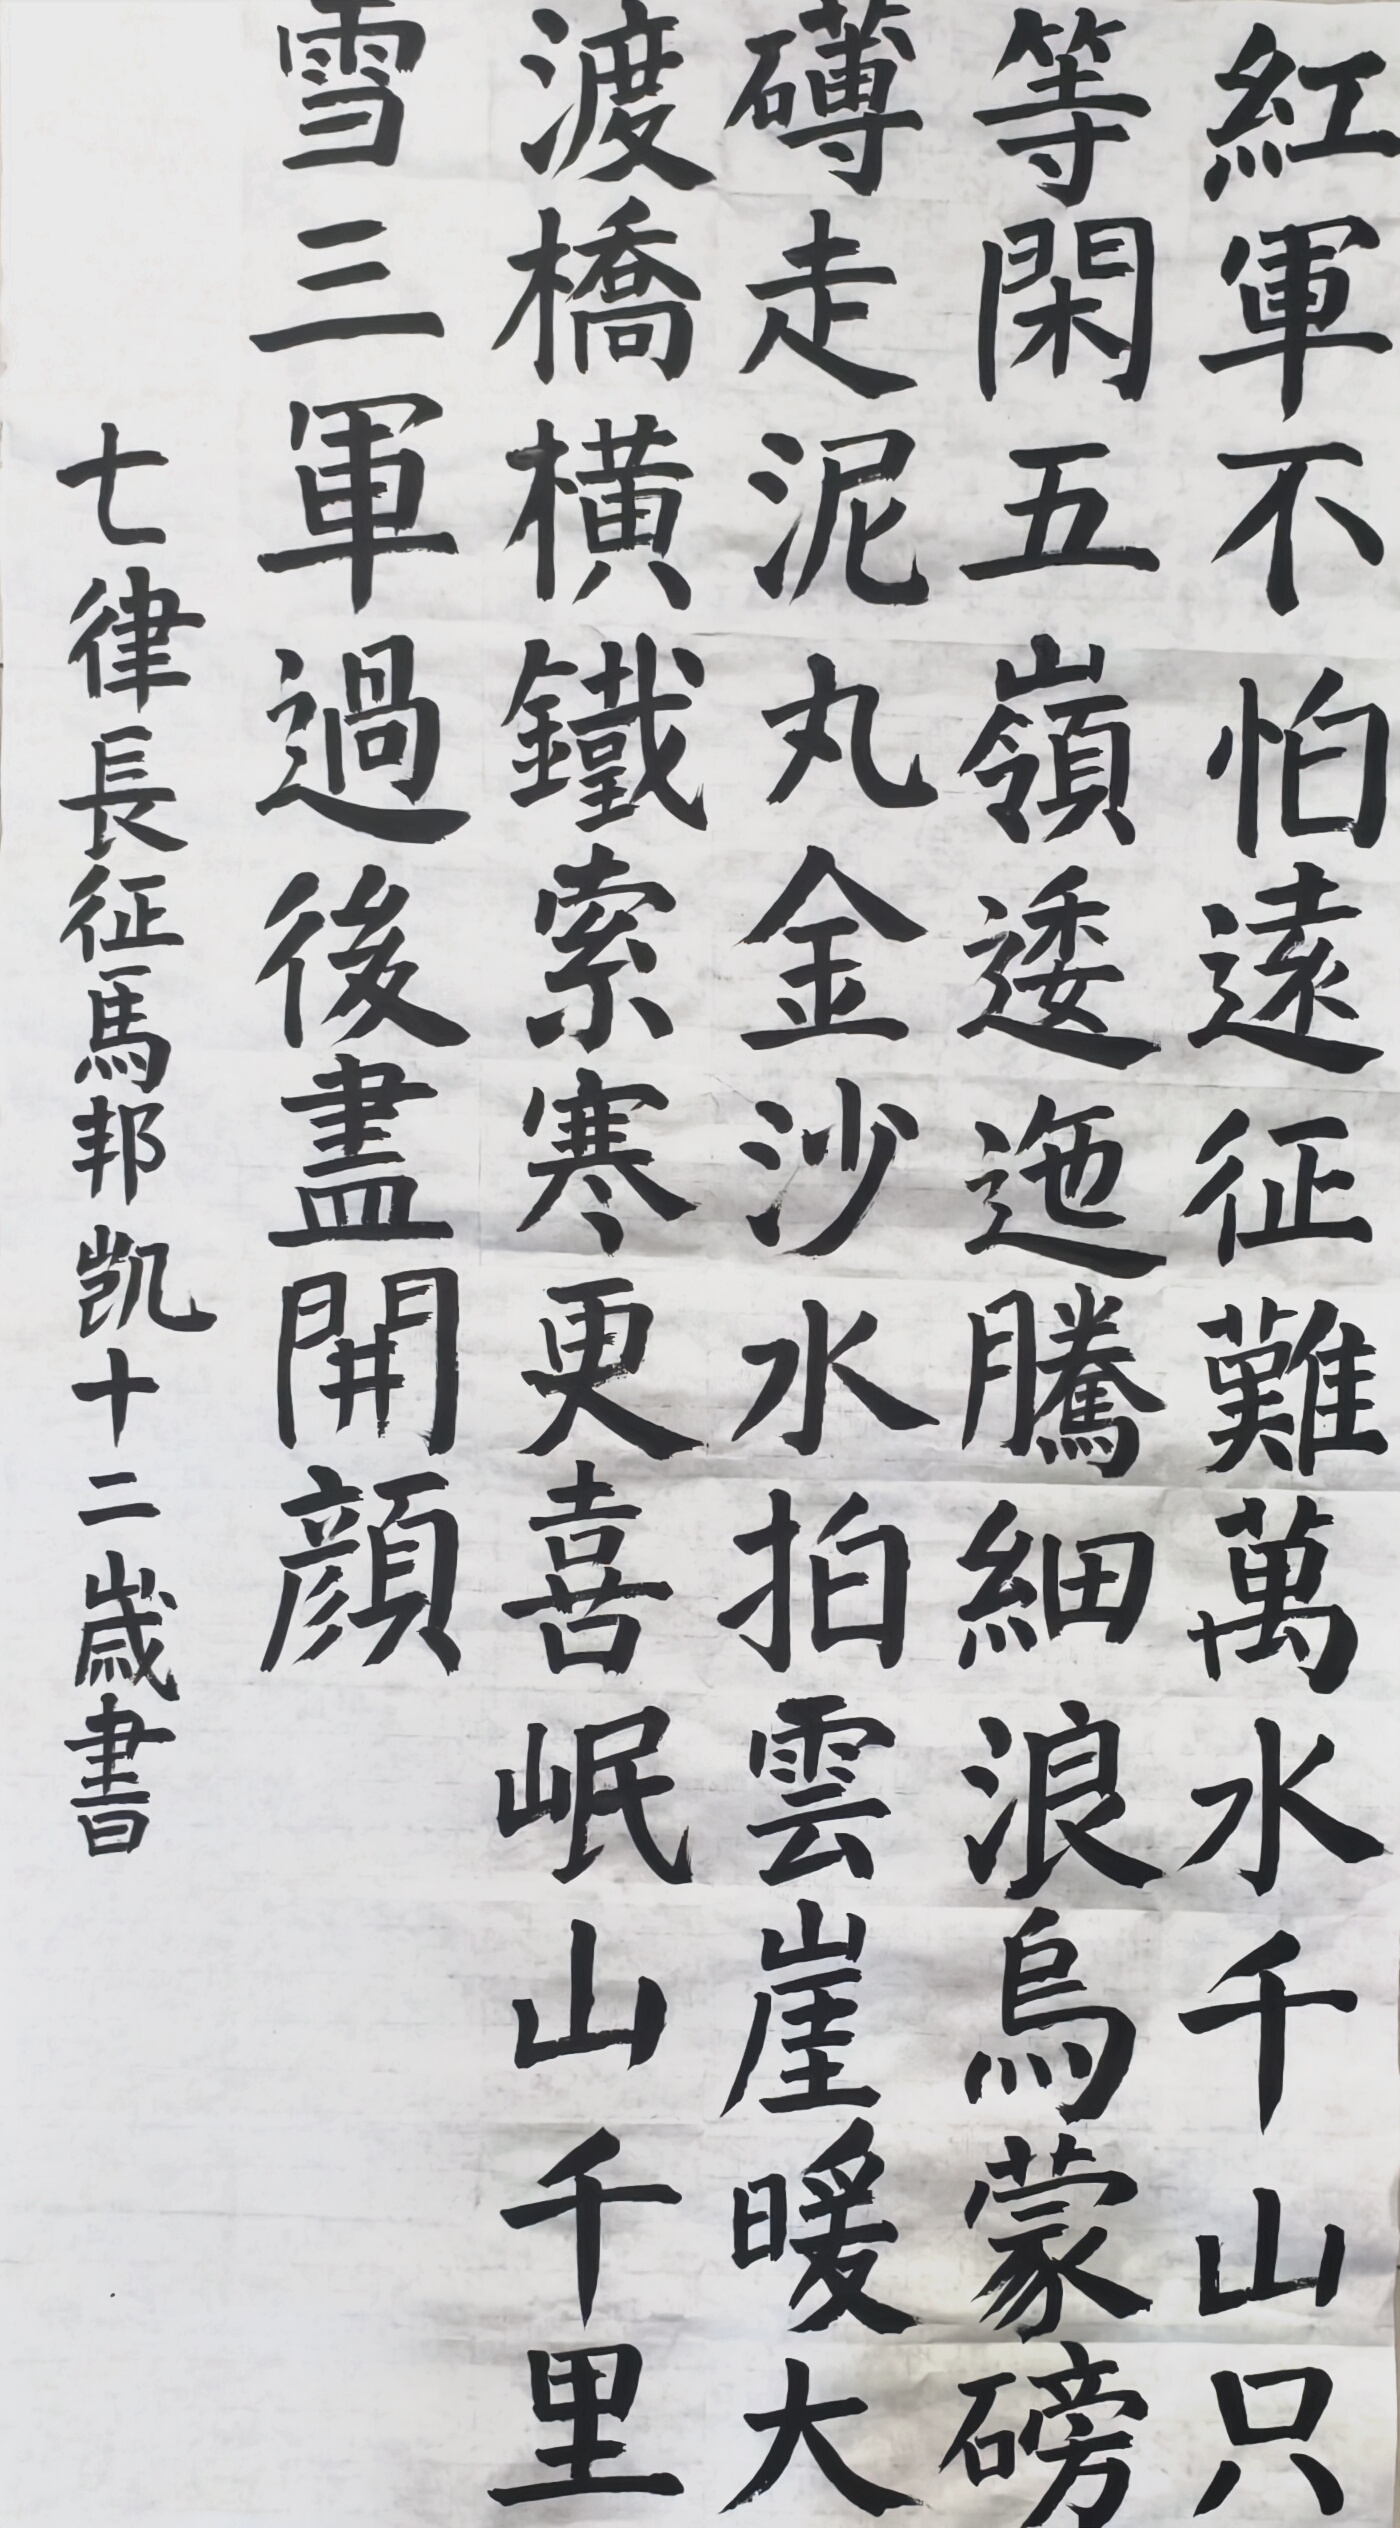 紅軍不怕遠征難萬水千山只
等閑五嶺逶迤騰細浪烏蒙磅
礴走泥丸金沙水拍雲崖暖大
渡橋橫鐵索寒更喜岷山千里
雪三軍過後盡開顔
七律長征馬邦凯十二歲書